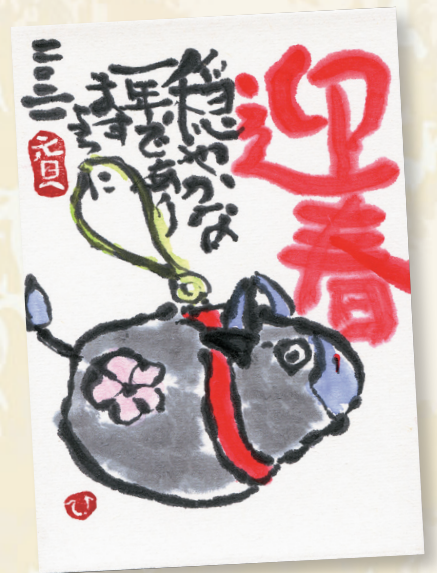 迎春
穏やかな
一年であり
ますように
二〇二一
元旦
ひ